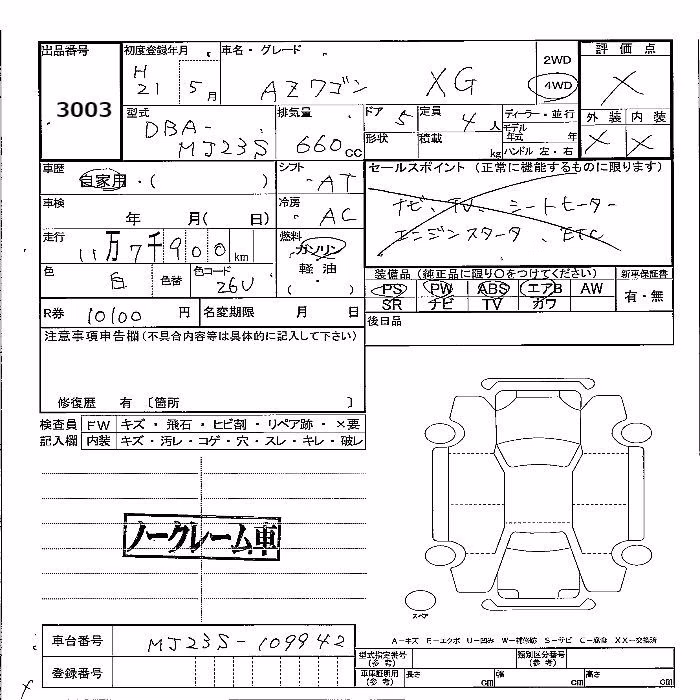 出品番号 初度登録年月 車名・グレード 2WD 評価点
3003 H21 5月 AZワゴン XG 4WD ×
型式 排気量 ドア 5 定員 4人 ディーラー・並行 外装 内装
DBA-MJ23S 660cc 形状 積載 kg モデル年式 年 × ×
ハンドル 左・右
車歴 自家用・( ) シフト AT セールスポイント (正常に機能するものに限ります)
車検 年 月( 日) 冷房 AC ナビ、TV、シートヒーター
走行 11万7千900km 燃料 ガソリン 軽油 ( ・ ) エンジンスタータ、ETC
色 白 色替 色コード 26U 装備品 (純正品に限り○をつけてください) 新車保証書
PS PW ABS エアB AW 有・無
SR ナビ TV カワ
R券 10100円 名変期限 月 日 後日品
注意事項申告欄 (不具合内容等は具体的に記入して下さい)
修復歴 有 〔箇所 〕
検査員 FW キズ・飛石・ヒビ割・リペア跡・×要
記入欄 内装 キズ・汚レ・コゲ・穴・スレ・キレ・破レ
ノークレーム車
スペア
A-キズ E-エクボ U-凹み W-補修跡 S-サビ C-腐食 XX-交換済
車台番号 MJ23S-109942 型式指定番号 (参考) 類別区分番号 (参考)
登録番号 車庫証明用 (参考) 長さ cm 幅 cm 高さ cm